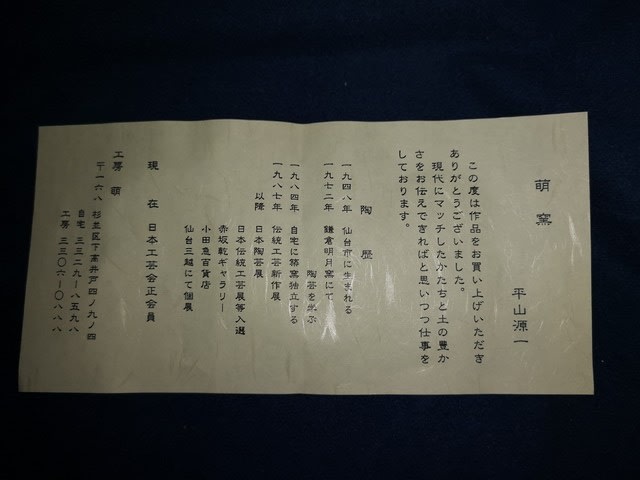 萌窯
平山源一
この度は作品をお買い上げいただき
ありがとうございました。
現代にマッチしたかたちと土の豊か
さをお伝えできればと思いつつ仕事を
しております。
陶歴
一九四八年 仙台市に生まれる
一九七二年 鎌倉明月窯にて
陶芸を学ぶ
一九八四年 自宅に築窯独立する
一九八七年 伝統工芸新作展
以降 日本陶芸展
日本伝統工芸展等入選
赤坂乾ギャラリー
小田急百貨店
仙台三越にて個展
現在 日本工芸会正会員
工房 萌
〒一六八 杉並区下高井戸四ノ九ノ四
自宅 三三二九ー八五九八
工房 三三〇六ー〇八八八